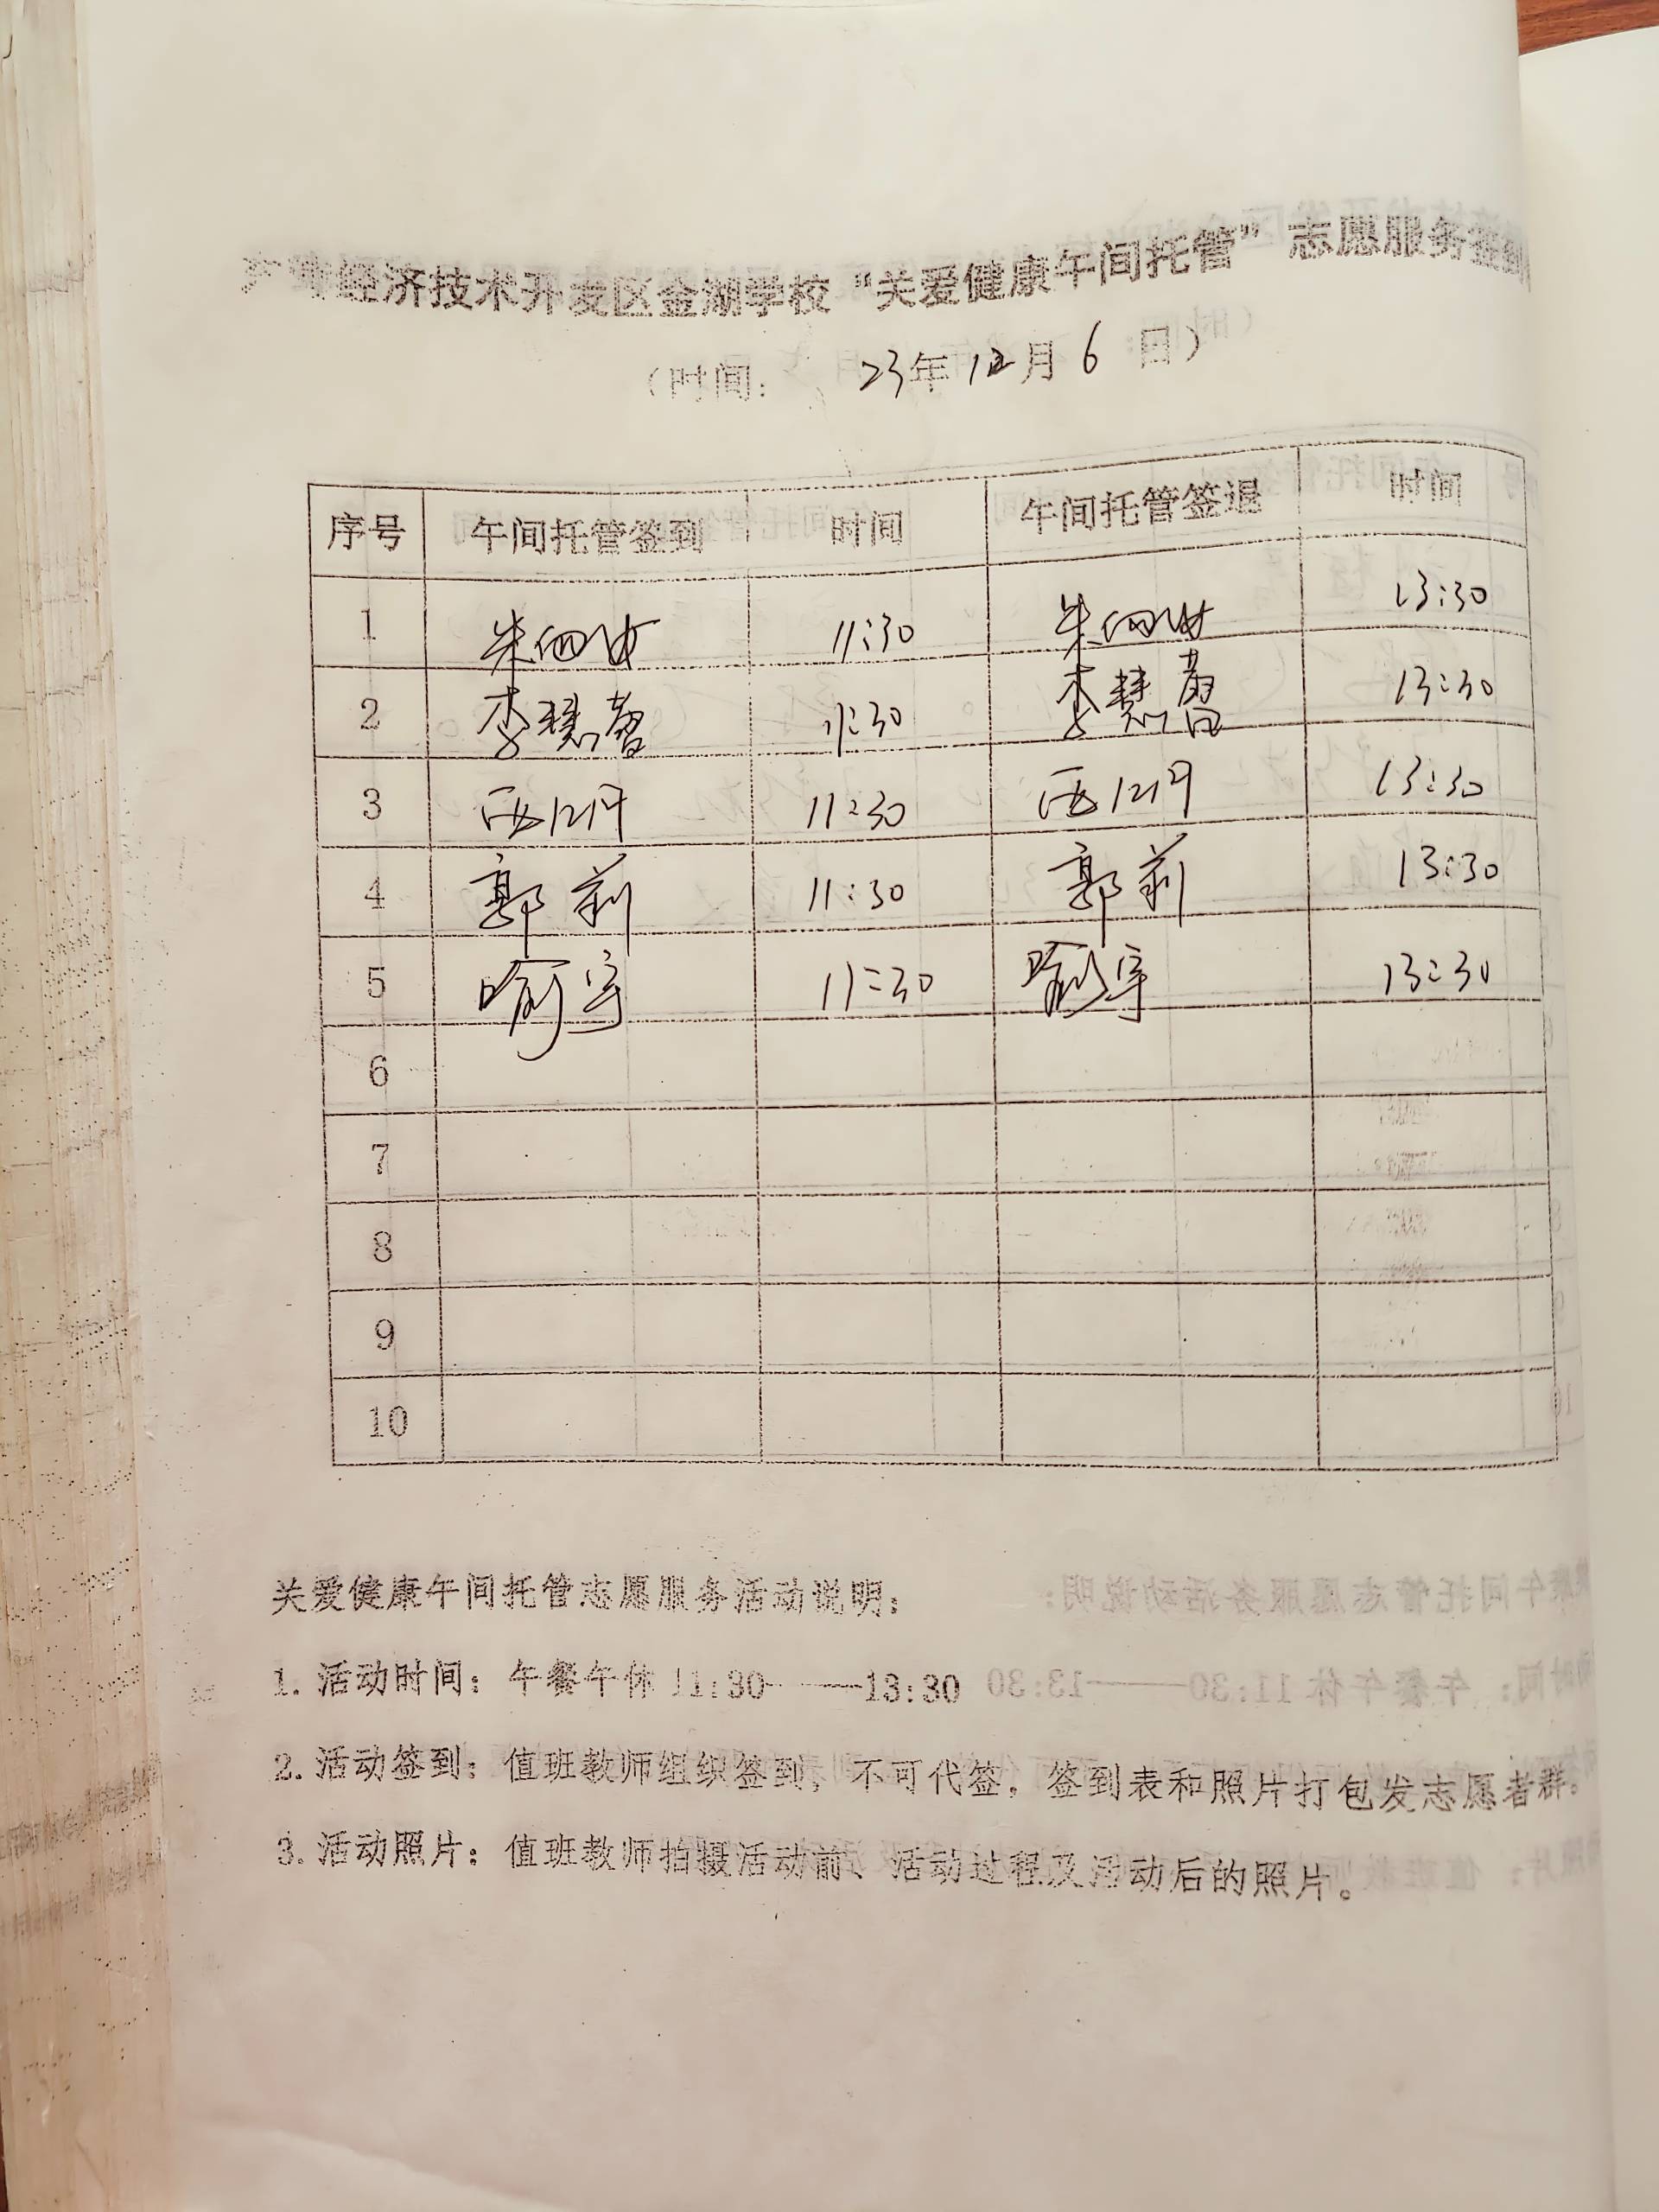 经济技术开发区金湖学校“关爱健康午间托管”志愿服务签
（时间： 23年12月6日）
序号 午间托管签到 时间 午间托管签退 时间
1 朱 11:30 朱 13:30
2 李慧 11:30 李慧 13:30
3 11:30 13:30
4 郭莉 11:30 郭莉 13:30
5 喻宇 11:30 喻宇 13:30
6
7
8
9
10
关爱健康午间托管志愿服务活动说明：
1. 活动时间：午餐午休 11:30——13:30
2. 活动签到：值班教师组织签到，不可代签，签到表和照片打包发志愿者群。
3. 活动照片：值班教师拍摄活动前、活动过程及活动后的照片。